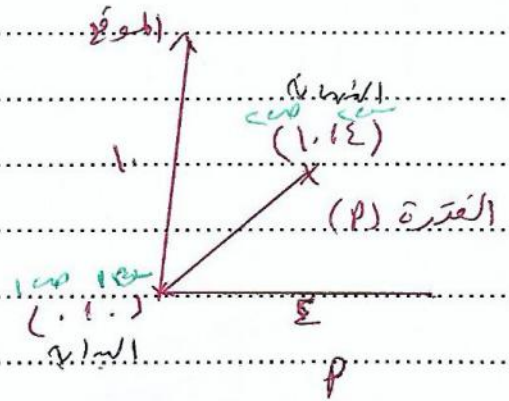 الموقع
النهاية
س٢ ص٢
(٤، ١٠)
١٠
الفترة (م)
س١ ص١
(٠، ٠)
البداية
٤
م